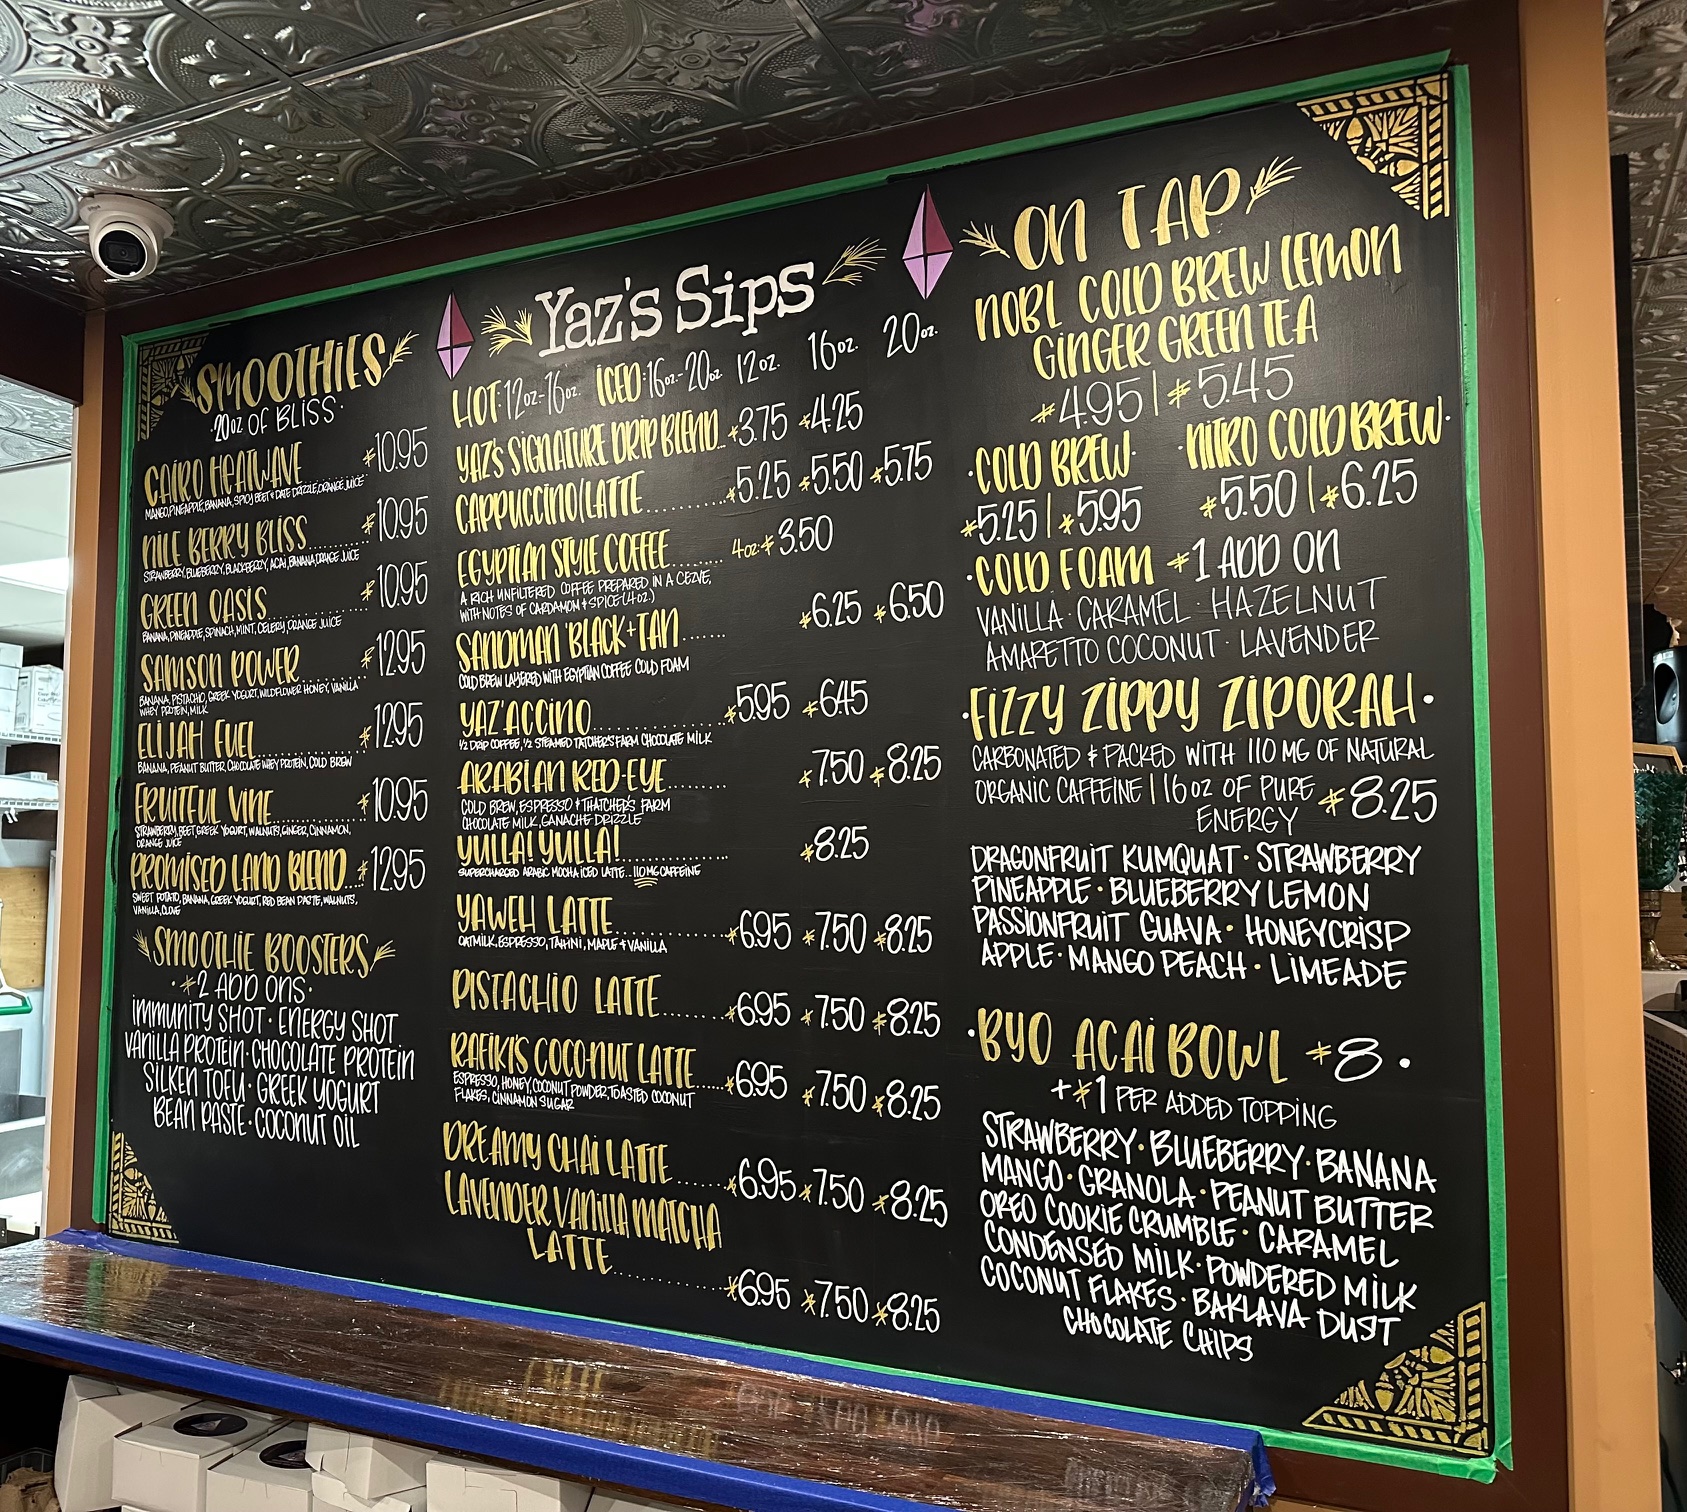 SMOOTHIES
·20oz OF BLISS·
CAIRO HEATWAVE........$10.95
MANGO, PINEAPPLE, BANANA, SPICY BEET + DATE DRIZZLE, ORANGE JUICE
NILE BERRY BLISS........$10.95
STRAWBERRY, BLUEBERRY, BLACKBERRY, ACAI, BANANA, ORANGE JUICE
GREEN OASIS........$10.95
BANANA, PINEAPPLE, SPINACH, MINT, CELERY, ORANGE JUICE
SAMSON POWER........$12.95
BANANA, PISTACHIO, GREEK YOGURT, WILDFLOWER HONEY, VANILLA
WHEY PROTEIN, MILK
ELIJAH FUEL........$12.95
BANANA, PEANUT BUTTER, CHOCOLATE WHEY PROTEIN, COLD BREW
FRUITFUL VINE........$10.95
STRAWBERRY, BEET GREEK YOGURT, WALNUTS, GINGER, CINNAMON,
ORANGE JUICE
PROMISED LAND BLEND...$12.95
SWEET POTATO, BANANA, GREEK YOGURT, RED BEAN PASTE, WALNUTS,
VANILLA, CLOVE
SMOOTHIE BOOSTERS
·$2 ADD ONS·
IMMUNITY SHOT · ENERGY SHOT
VANILLA PROTEIN · CHOCOLATE PROTEIN
SILKEN TOFU · GREEK YOGURT
BEAN PASTE · COCONUT OIL
Yaz's Sips
HOT: 12oz-16oz. ICED: 16oz-20oz 12oz. 16oz. 20oz.
YAZ'S SIGNATURE DRIP BLEND..$3.75 $4.25
CAPPUCCINO/LATTE........$5.25 $5.50 $5.75
EGYPTIAN STYLE COFFEE........ 4oz:$3.50
A RICH UNFILTERED COFFEE PREPARED IN A CEZVE,
WITH NOTES OF CARDAMOM + SPICE (4 OZ.)
SANDMAN BLACK+TAN....... $6.25 $6.50
COLD BREW LAYERED WITH EGYPTIAN COFFEE COLD FOAM
YAZ'ACCINO........$5.95 $6.45
1/2 DRIP COFFEE, 1/2 STEAMED TATCHER'S FARM CHOCOLATE MILK
ARABIAN RED-EYE........ $7.50 $8.25
COLD BREW, ESPRESSO + THATCHER'S FARM
CHOCOLATE MILK, GANACHE DRIZZLE
YULLA! YULLA!........ $8.25
SUPERCHARGED ARABIC MOCHA ICED LATTE...110 MG CAFFEINE
YAWEH LATTE........$6.95 $7.50 $8.25
OATMILK, ESPRESSO, TAHINI, MAPLE + VANILLA
PISTACHIO LATTE........$6.95 $7.50 $8.25
RAFIKI'S COCO-NUT LATTE....$6.95 $7.50 $8.25
ESPRESSO, HONEY, COCONUT POWDER, TOASTED COCONUT
FLAKES, CINNAMON SUGAR
DREAMY CHAI LATTE.......$6.95 $7.50 $8.25
LAVENDER VANILLA MATCHA
LATTE............$6.95 $7.50 $8.25
ON TAP
NOBL COLD BREW LEMON
GINGER GREEN TEA
$4.95 | $5.45
·COLD BREW· ·NITRO COLD BREW·
$5.25 | $5.95 $5.50 | $6.25
·COLD FOAM $1 ADD ON
VANILLA · CARAMEL · HAZELNUT
AMARETTO COCONUT · LAVENDER
·FIZZY ZIPPY ZIPORAH·
CARBONATED + PACKED WITH 110 MG OF NATURAL
ORGANIC CAFFEINE | 16oz OF PURE $8.25
ENERGY
DRAGONFRUIT KUMQUAT · STRAWBERRY
PINEAPPLE · BLUEBERRY LEMON
PASSIONFRUIT GUAVA · HONEYCRISP
APPLE · MANGO PEACH · LIMEADE
·BYO ACAI BOWL $8·
+$1 PER ADDED TOPPING
STRAWBERRY · BLUEBERRY · BANANA
MANGO · GRANOLA · PEANUT BUTTER
OREO COOKIE CRUMBLE · CARAMEL
CONDENSED MILK · POWDERED MILK
COCONUT FLAKES · BAKLAVA DUST
CHOCOLATE CHIPS